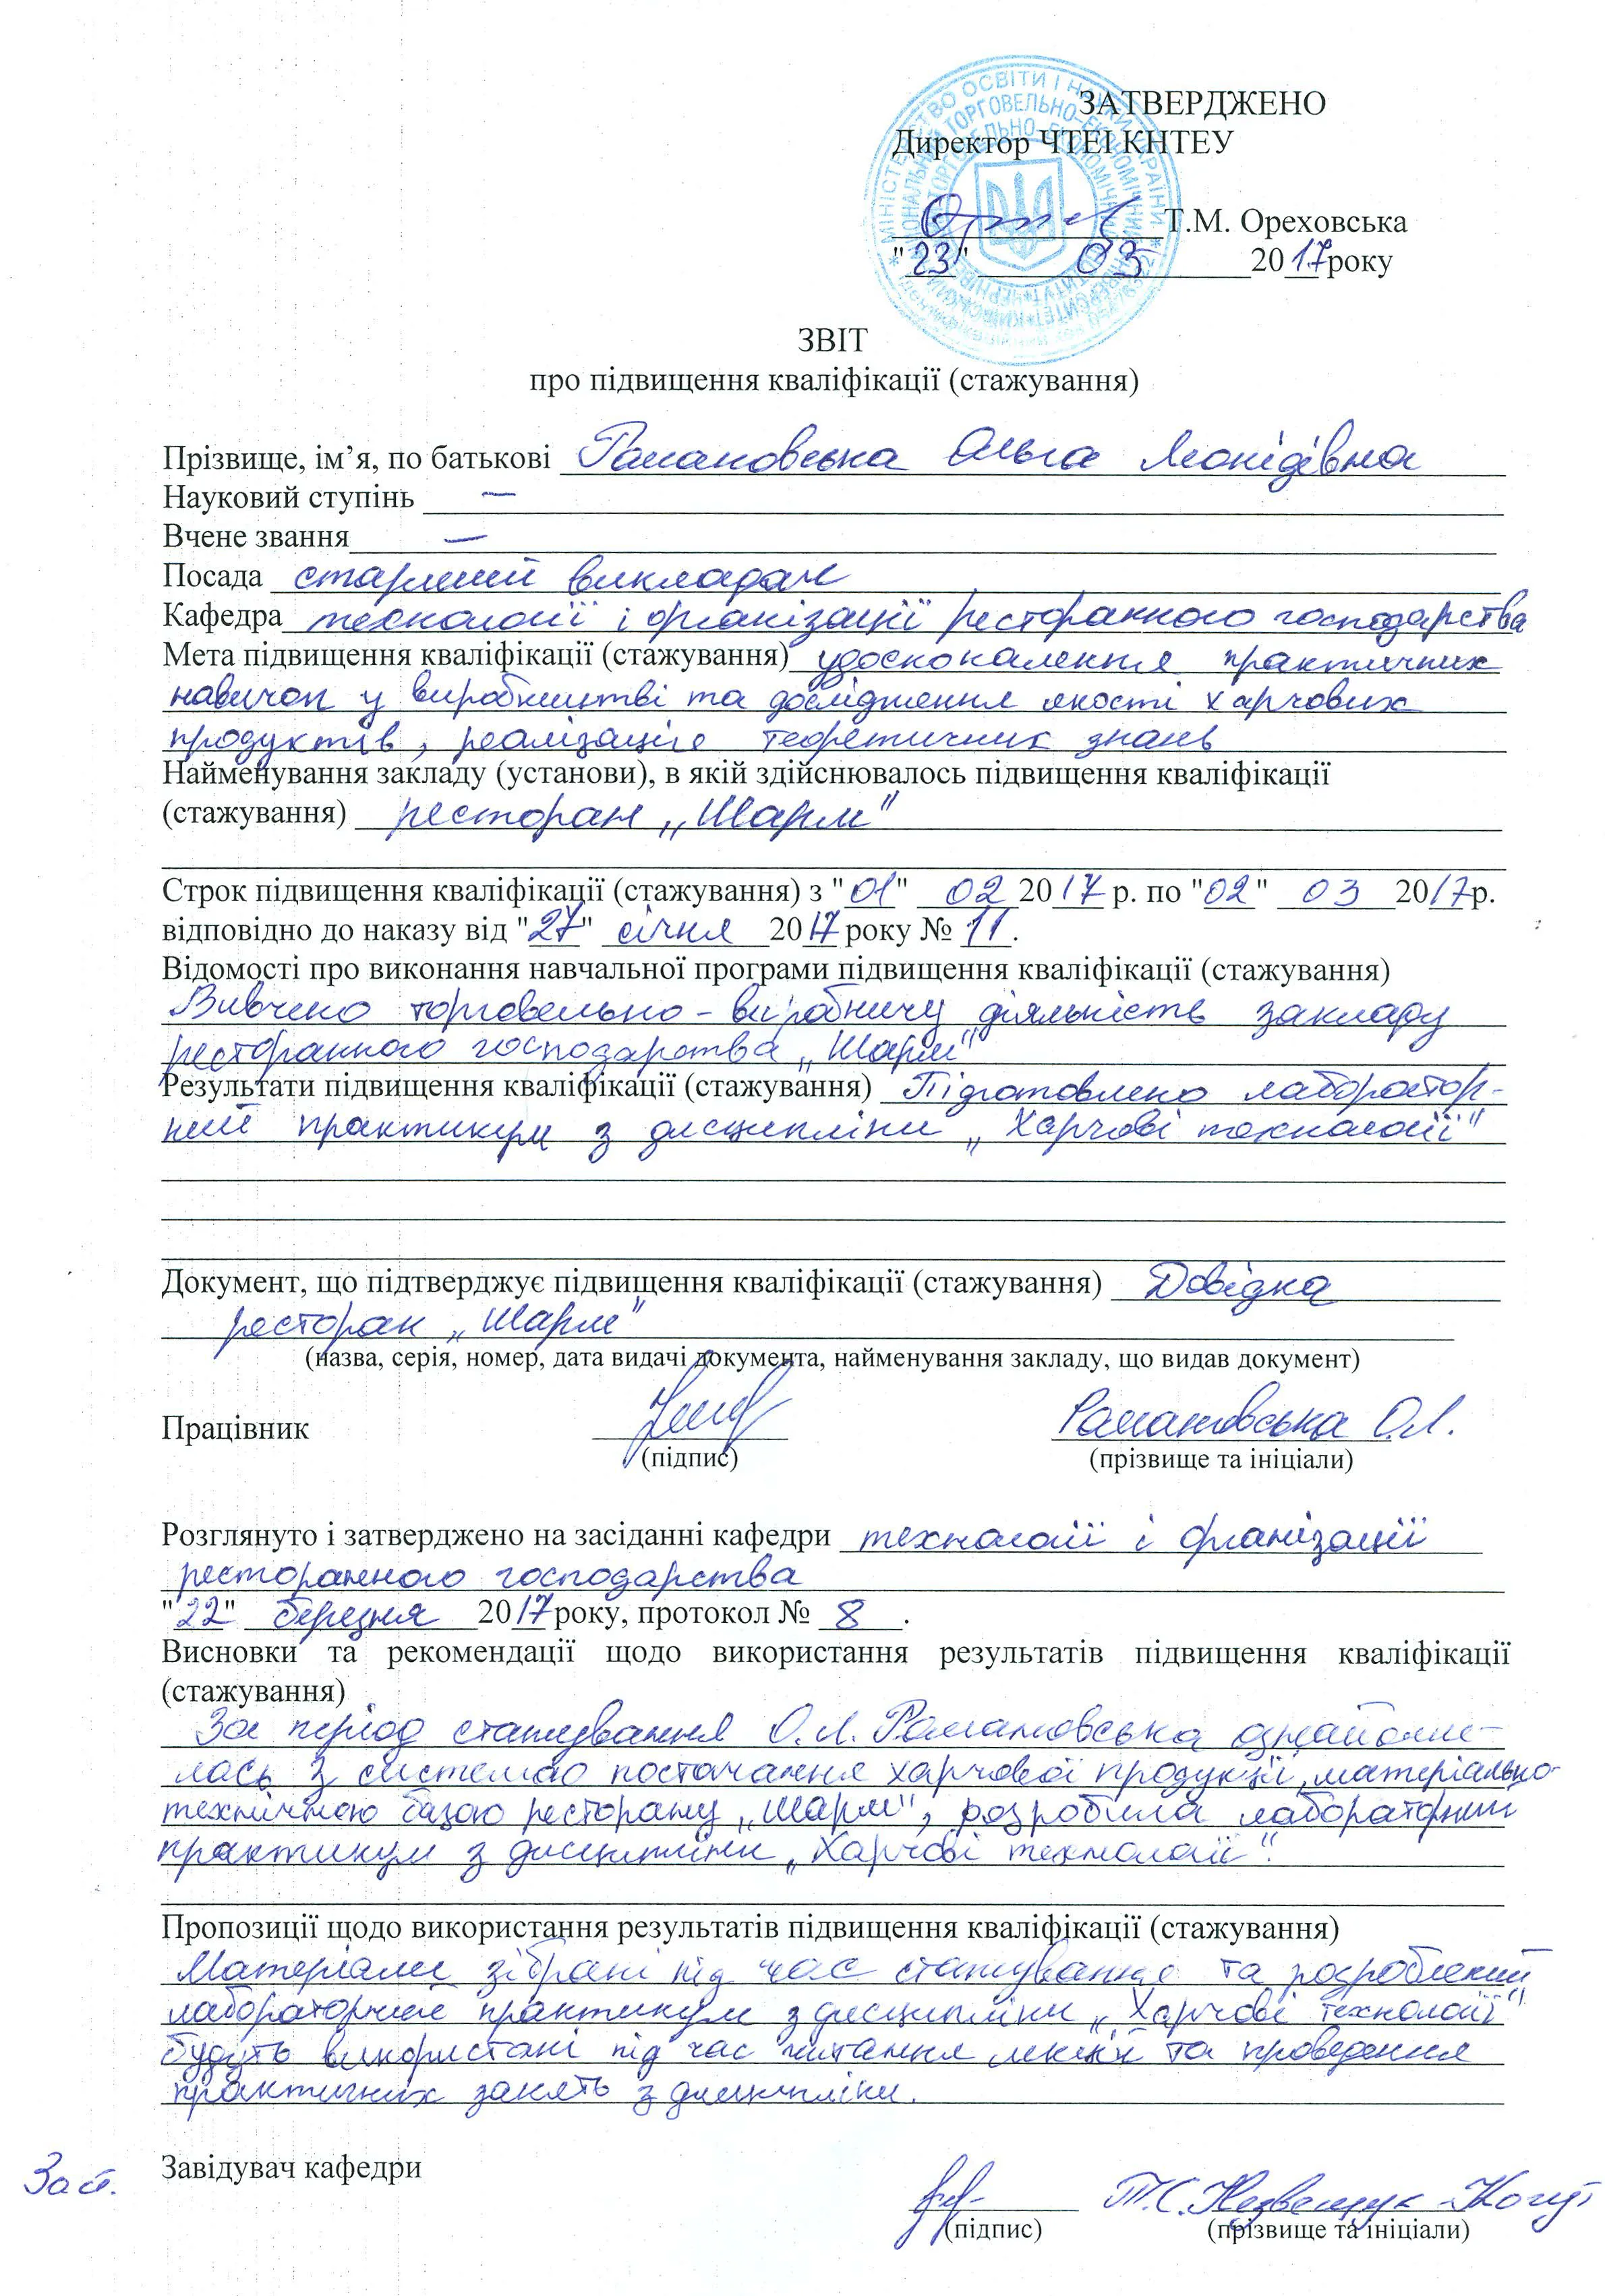 ЗАТВЕРДЖЕНО
Директор ЧТЕІ КНТЕУ
Т.М. Ореховська
"23" 03 2017 року
ЗВІТ
про підвищення кваліфікації (стажування)
Прізвище, ім’я, по батькові Романовська Ольга Леонідівна
Науковий ступінь —
Вчене звання —
Посада старший викладач
Кафедра технології і організації ресторанного господарства
Мета підвищення кваліфікації (стажування) удосконалення практичних
навичок у виробництві та дослідження якості харчових
продуктів, реалізація теоретичних знань
Найменування закладу (установи), в якій здійснювалось підвищення кваліфікації
(стажування) ресторан „Шарм"
Строк підвищення кваліфікації (стажування) з "01" 02 2017 р. по "02" 03 2017р.
відповідно до наказу від "27" січня 2017 року № 11.
Відомості про виконання навчальної програми підвищення кваліфікації (стажування)
Вивчено торговельно-виробничу діяльність закладу
ресторанного господарства „Шарм"
Результати підвищення кваліфікації (стажування) Підготовлено лаборатор-
ний практикум з дисципліни „Харчові технології"
Документ, що підтверджує підвищення кваліфікації (стажування) Довідка
ресторан „Шарм"
(назва, серія, номер, дата видачі документа, найменування закладу, що видав документ)
Працівник Романовська О.Л.
(підпис) (прізвище та ініціали)
Розглянуто і затверджено на засіданні кафедри технології і організації
ресторанного господарства
"22" березня 2017 року, протокол № 8.
Висновки та рекомендації щодо використання результатів підвищення кваліфікації
(стажування)
За період стажування О.Л. Романовська ознайоми-
лась з системою постачання харчової продукції, матеріально-
технічною базою ресторану „Шарм", розробила лабораторний
практикум з дисципліни „Харчові технології".
Пропозиції щодо використання результатів підвищення кваліфікації (стажування)
Матеріали зібрані під час стажування та розроблений
лабораторний практикум з дисципліни „Харчові технології"
будуть використані під час читання лекцій та проведення
практичних занять з дисципліни.
Заст. Завідувач кафедри
Т.С. Незвещук-Когут
(підпис) (прізвище та ініціали)